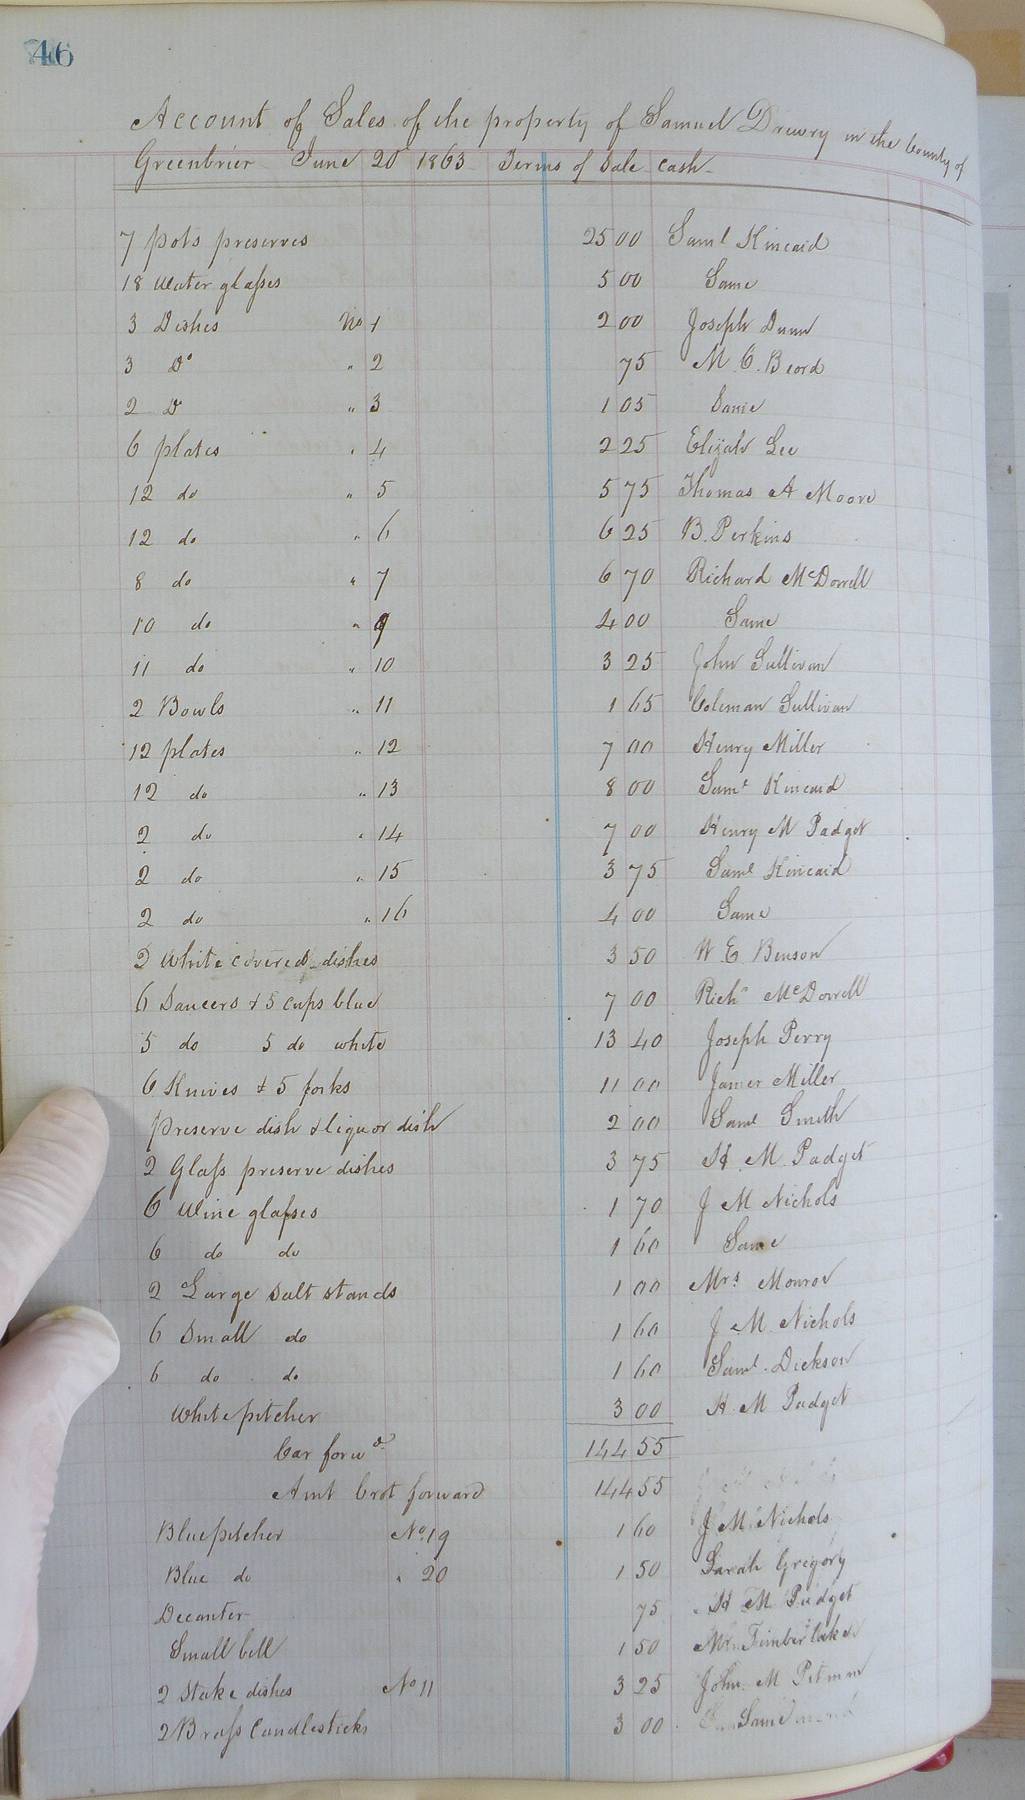 46
Account of Sales of the property of Samuel Drewry in the County of
Greenbrier June 20 1863 Terms of Sale cash
7 pots preserves 25 00 Saml Kincaid
18 Water glasses 5 00 Same
3 Dishes No 1 2 00 Joseph Dunn
3 Do " 2 75 M. C. Beard
2 D " 3 1 05 Same
6 plates " 4 2 25 Elijah Lee
12 do " 5 5 75 Thomas A Moore
12 do " 6 6 25 B. Perkins
8 do " 7 6 70 Richard McDowell
10 do " 9 4 00 Same
11 do " 10 3 25 John Sullivan
2 Bowls " 11 1 65 Coleman Sullivan
12 plates " 12 7 00 Henry Miller
12 do " 13 8 00 Saml Kincaid
2 do " 14 7 00 Henry M Padget
2 do " 15 3 75 Saml Kincaid
2 do " 16 4 00 Same
2 White covered dishes 3 50 W E Benson
6 Saucers & 5 cups blue 7 00 Richd McDowell
5 do 5 do white 13 40 Joseph Perry
6 Knives & 5 forks 11 00 James Miller
Preserve dish & liquor dish 2 00 Saml Smith
2 Glass preserve dishes 3 75 H. M. Padget
6 Wine glasses 1 70 J M Nichols
6 do do 1 60 Same
2 Large Salt stands 1 00 Mrs Monroe
6 Small do 1 60 J M Nichols
6 do do 1 60 Saml Dickson
White pitcher 3 00 H. M Padget
Car forwd 144 55
Amt brot forward 144 55
Blue pitcher No. 19 1 60 J M Nichols
Blue do " 20 1 50 Sarah Gregory
Decanter 75 H M Padget
Small bell 1 50 Timberlake
2 Stake dishes No 11 3 25 John M Pitman
2 Brass Candlesticks 3 00 Same